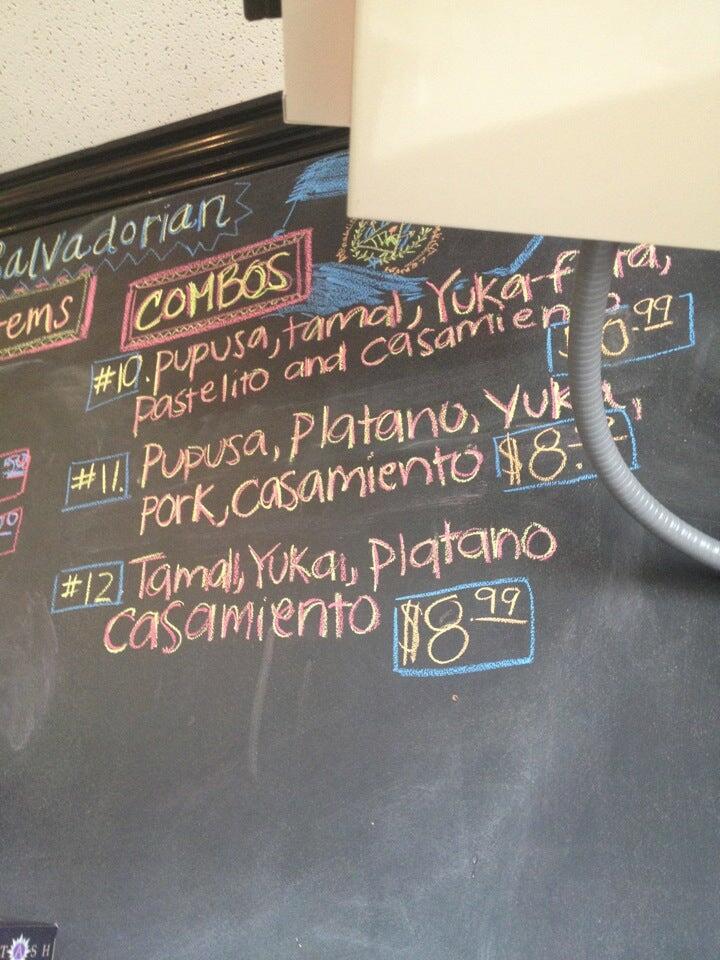 Salvadorian
COMBOS
#10. Pupusa, tamal,
Pastelito and Casamien
#11. Pupusa, Platano,
Pork, Casamiento $8.
#12. Tamal, Yuka, Platano
Casamiento $8.99